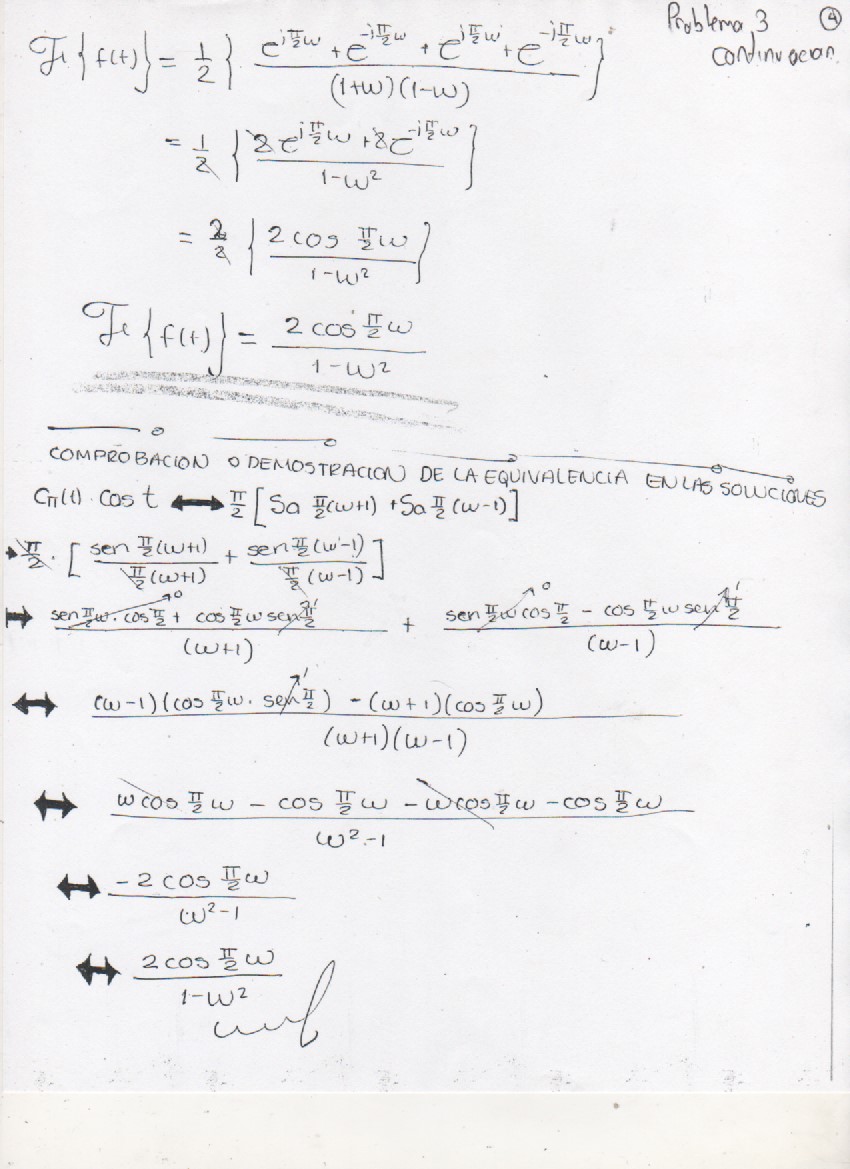 Problema 3 ④
continuacion
F{f(t)} = 1/2 { (e^{iπ/2ω} + e^{-iπ/2ω} + e^{iπ/2ω} + e^{-iπ/2ω}) / ((1+ω)(1-ω)) }
= 1/2 { (2e^{iπ/2ω} + 2e^{-iπ/2ω}) / (1-ω²) }
= 2/2 { (2cos π/2 ω) / (1-ω²) }
F{f(t)} = (2cos π/2 ω) / (1-ω²)
COMPROBACION O DEMOSTRACION DE LA EQUIVALENCIA EN LAS SOLUCIONES
Cπ(t) · cos t ↔ π/2 [Sa π/2(ω+1) + Sa π/2(ω-1)]
→ π/2 · [ (sen π/2(ω+1)) / (π/2(ω+1)) + (sen π/2(ω-1)) / (π/2(ω-1)) ]
⇒ (sen π/2 ω · cos π/2 + cos π/2 ω sen π/2) / (ω+1) + (sen π/2 ω cos π/2 - cos π/2 ω sen π/2) / (ω-1)
↔ ((ω-1)(cos π/2 ω · sen π/2) - (ω+1)(cos π/2 ω)) / ((ω+1)(ω-1))
↔ (ω cos π/2 ω - cos π/2 ω - ω cos π/2 ω - cos π/2 ω) / (ω²-1)
↔ (-2cos π/2 ω) / (ω²-1)
↔ (2cos π/2 ω) / (1-ω²)